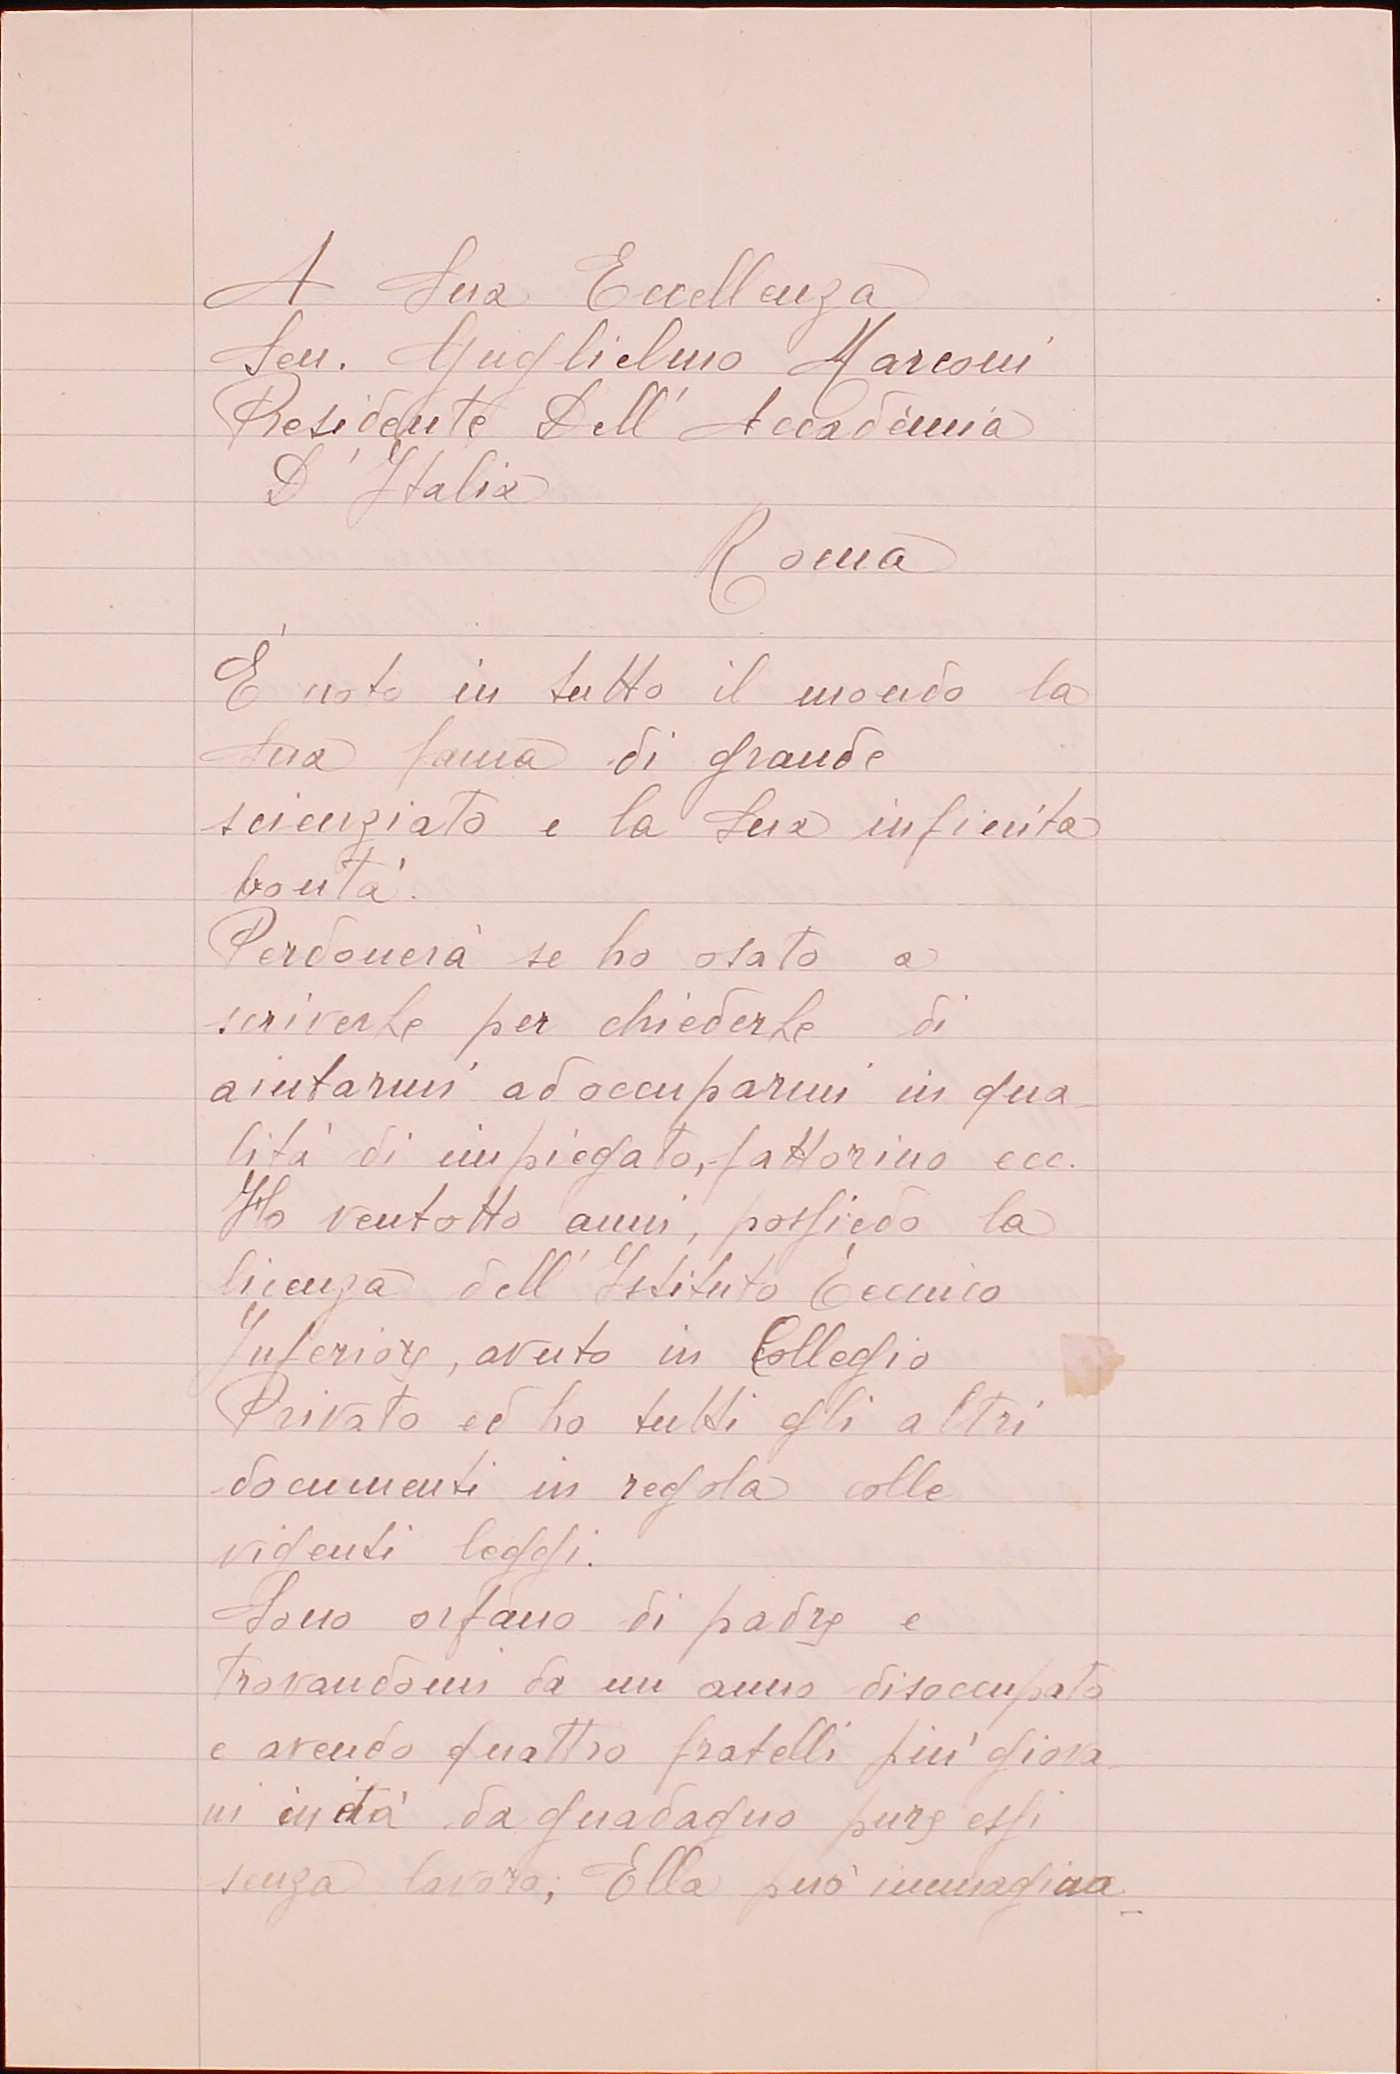 A Sua Eccellenza
Sen. Guglielmo Marconi
Presidente Dell' Accademia
D' Italia
Roma
É noto in tutto il mondo la
Sua fama di grande
scienziato e la Sua infinita
bontà.
Perdonerà se ho osato a
scriverLe per chiederLe di
aiutarmi ad occuparmi in qua-
lità di impiegato, fattorino ecc.
Ho ventotto anni, possiedo la
licenza dell' Istituto Tecnico
Inferiore, avuto in Collegio
Privato ed ho tutti gli altri
documenti in regola colle
vigenti leggi.
Sono orfano di padre e
trovandomi da un anno disoccupato
e avendo quattro fratelli più giova-
ni in età da guadagno pure essi
senza lavoro; Ella può immagina-